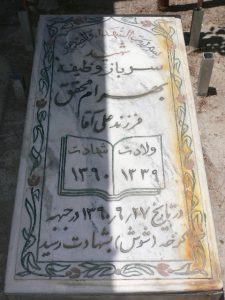 شهید
سرباز وظیفه
بهرام محقق
فرزند علی آقا
ولادت شهادت
۱۳۳۹ ۱۳۶۰
در تاریخ ۱۳۶۰٫۹٫۲۷ در جبهه
کرخه (شوش) بشهادت رسید